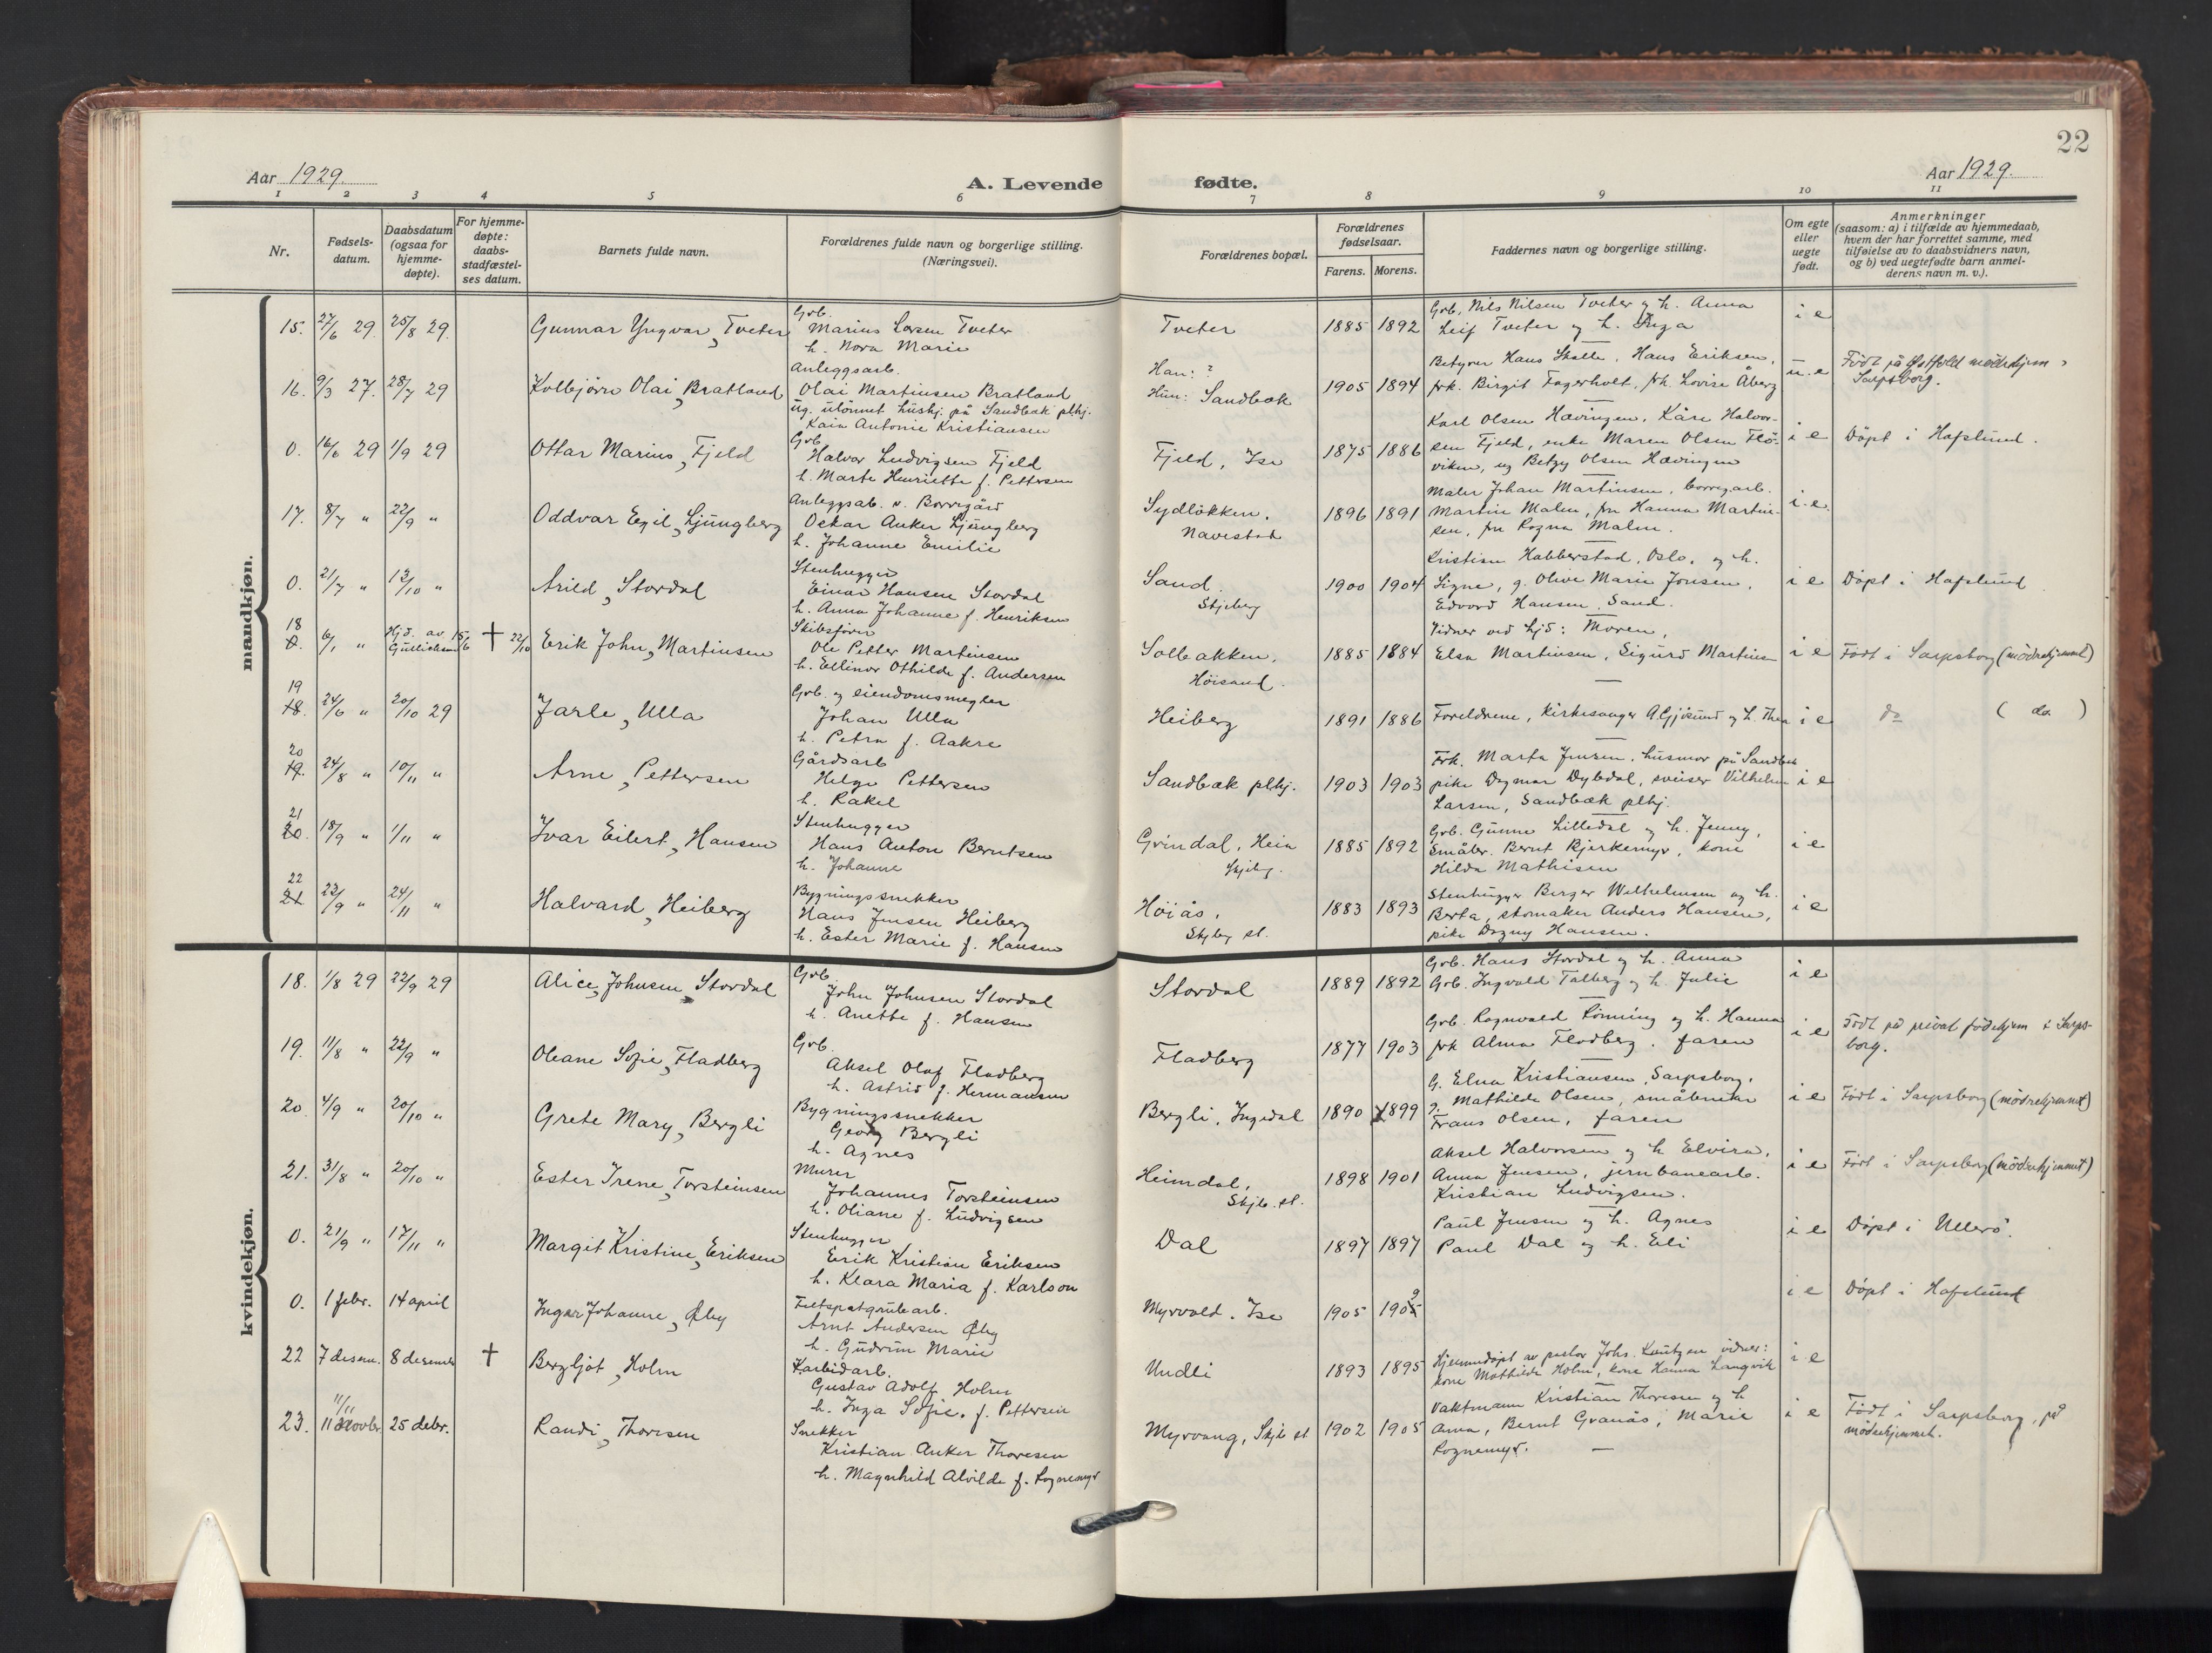 22
Aar 1929.
A. Levende fødte.
Aar 1929.
1 2 3 4 5 6 7 8 9 10 11
Nr.
Fødsels-
datum.
Daabsdatum
(ogsaa for
hjemme-
døpte).
For hjemme-
døpte:
daabs-
stadfæstel-
ses datum.
Barnets fulde navn.
Forældrenes fulde navn og borgerlige stilling.
(Næringsvei).
Forældrenes bopæl.
Forældrenes
fødselsaar.
Farens. Morens.
Faddernes navn og borgerlige stilling.
Om egte
eller
uegte
født.
Anmerkninger
(saasom: a) i tilfælde av hjemmedaab,
hvem der har forrettet samme, med
tilføielse av to daabsvidners navn,
og b) ved uegtefødte barn anmel-
derens navn m. v.).
mandkjøn.
15. 27/6 29. 25/8 29. Gunnar Yngvar, Tveter
Grb.
Marius Larsen Tveter
h. Nora Marie
Tveter 1885 1892
Grb. Nils Nilsen Tveter og h. Anna
Leif Tveter og h. Inga
i e
16. 9/3 27. 28/7 29 Kolbjørn Olai, Bratland
Anleggsarb.
Olai Martinsen Bratland
ug. ulønnet hushj. på Sandbæk plhj.
Kaia Antonie Kristiansen
Han: ?
Hun: Sandbæk 1905 1894
Betyrer Hans Skolle, Hans Eriksen,
frk. Birgit Fagerholt, frk. Lovise Åberg
u. e
Födt på Østfold mödrehjem,
Sarpsborg.
0. 16/6 29 1/9 29 Ottar Marius, Fjeld
Grb
Halvor Ludvigsen Fjeld
h. Marte Henriette f. Pettersen
Fjeld, Ise 1875 1886
Karl Olsen Hævingen, Kåre Halvor-
sen Fjeld, enke Maren Olsen Flö-
viken, ug Betzy Olsen Hævingen
i e
Döpt i Hafslund.
17. 8/7 " 22/9 " Oddvar Egil, Ljungberg
Anleggsab. v. Borregård
Oskar Anker Ljungberg
h. Johanne Emilie
Sydløkken,
Navestad 1896 1891
Maler Johan Martinsen, borreg.arb.
Martin Malm, fru Hanna Martin-
sen, fru Ragna Malm.
i. e.
0. 21/7 " 13/10 " Arild, Stordal
Stenhugger
Einar Hansen Stordal
h. Anna Johanne f. Henriksen
Sand.
Skjeberg 1900 1904
Kristian Habberstad, Oslo, og h.
Signe, g. Olive Marie Jonsen,
Edvard Hansen, Sand.
i e
Döpt i Hafslund
18 6/1 " Hjd. av Gullichsen 15/6 † 22/10 Erik John, Martinsen
Skibsfører
Ole Petter Martinsen
h. Ellinor Othilde f. Andersen
Solbakken,
Höisand. 1885 1884
Vidner ved hjd: Moren,
Elsa Martinsen, Sigurd Martinsen
i e
Födt i Sarpsborg (mödrehjemmet)
19
18. 24/6 " 20/10 29 Jarle, Ulla
Grb. og eiendomsmegler
Johan Ulla
h. Petra f. Aakre
Heiberg 1891 1886
Foreldrene, Kirkesanger A. Gjøsund og h. Thea
i e
do ( do. )
20
19. 24/8 " 10/11 " Arne, Pettersen
Gårdsarb
Helge Pettersen
h. Rakel
Sandbæk plhj. 1903 1903
Frk. Marta Jensen, husmor på Sandbæk
pike Dagmar Dybdal, sveiser Vilhelm
Larsen, Sandbæk plhj.
i e
21
20. 18/9 " 1/11 " Ivar Eilert, Hansen
Stenhugger
Hans Anton Berntsen
h. Johanne
Grindal, Hein
Skjebg. 1885 1892
Grb. Gunne Lilledal og h. Jenny,
Småbr. Bernt Bjerkemyr, kone
Hilda Mathisen
i e
22
21 23/9 " 24/11 " Halvard, Heiberg
Bygningssnekker
Hans Jensen Heiberg
h. Ester Marie f. Hansen
Höiås,
Skjbg st. 1883 1893
Stenhugger Berger Wilhelmsen og h.
Berta, skomaker Anders Hansen,
pike Dagny Hansen.
i e
kvindekjøn.
18. 1/8 29 22/9 29 Alice, Johnsen Stordal
Grb.
John Johnsen Stordal
h. Anette f. Hansen
Stordal 1889 1892
Grb. Hans Stordal og h. Anna
Grb. Ingvald Talberg og h. Julie
i e
19. 11/8 " 22/9 " Oleane Sofie, Fladberg
Grb.
Aksel Olaf Fladberg
h. Astrid f. Hermansen
Fladberg 1877 1903
Grb. Ragnvald Rönning og h. Hanna
frk Alma Fladberg. faren
i e
Födt på privat födehjem i Sarps-
borg.
20. 4/9 " 20/10 " Grete Mary, Bergli
Bygningssnekker
Georg Bergli
h. Agnes
Bergli, Ingedal 1890 1899
G. Elna Kristiansen, Sarpsborg,
g. Mathilde Olsen, småbruker
Frans Olsen, faren
i e
Födt i Sarpsborg (mödrehjemmet)
21. 31/8 " 20/10 " Ester Irene, Torsteinsen
Murer
Johannes Torsteinsen
h. Oliane f. Ludvigsen
Heimdal,
Skjb. st. 1898 1901
Aksel Halvorsen og h Elvira,
Anna Jensen, jernbanearb.
Kristian Ludvigsen.
i e
Födt i Sarpsborg (mödrehjemmet)
0. 21/9 " 17/11 " Margit Kristine, Eriksen
Stenhugger
Erik Kristian Eriksen
h. Klara Maria f. Karlson
Dal 1897 1897
Paul Jensen og h. Agnes
Paul Dal og h. Eli
i e
Döpt i Ullerö.
0. 1 febr. 14 april Inger Johanne, Øby
Feltspatgrubearb.
Arnt Andersen Øby
h. Gudrun Marie
Myrvold. Ise 1905 1905 9
i e
Döpt i Hafslund
22 7 desem. 8 desember † Bergljot, Holm
Karbidarb.
Gustav Adolf Holm
h. Inga Sofie. f. Pettersen
Undli 1893 1895
Hjemmedöpt av pastor Johs. Knutzen vidner:
kone Mathilde Holm, kone Hanna Langvik
i e
11/11
23. 11 novbr. 25 debr. Randi, Thoresen
Snekker
Kristian Anker Thoresen
h. Magnhild Alvilde f. Rognemyr
Myrvang, Skjb st 1902 1905
Vaktmann Kristian Thoresen og h
Anna, Bernt Granås, Marie
Rognemyr.
i e
Födt i Sarpsborg, på
mödrehjemmet.